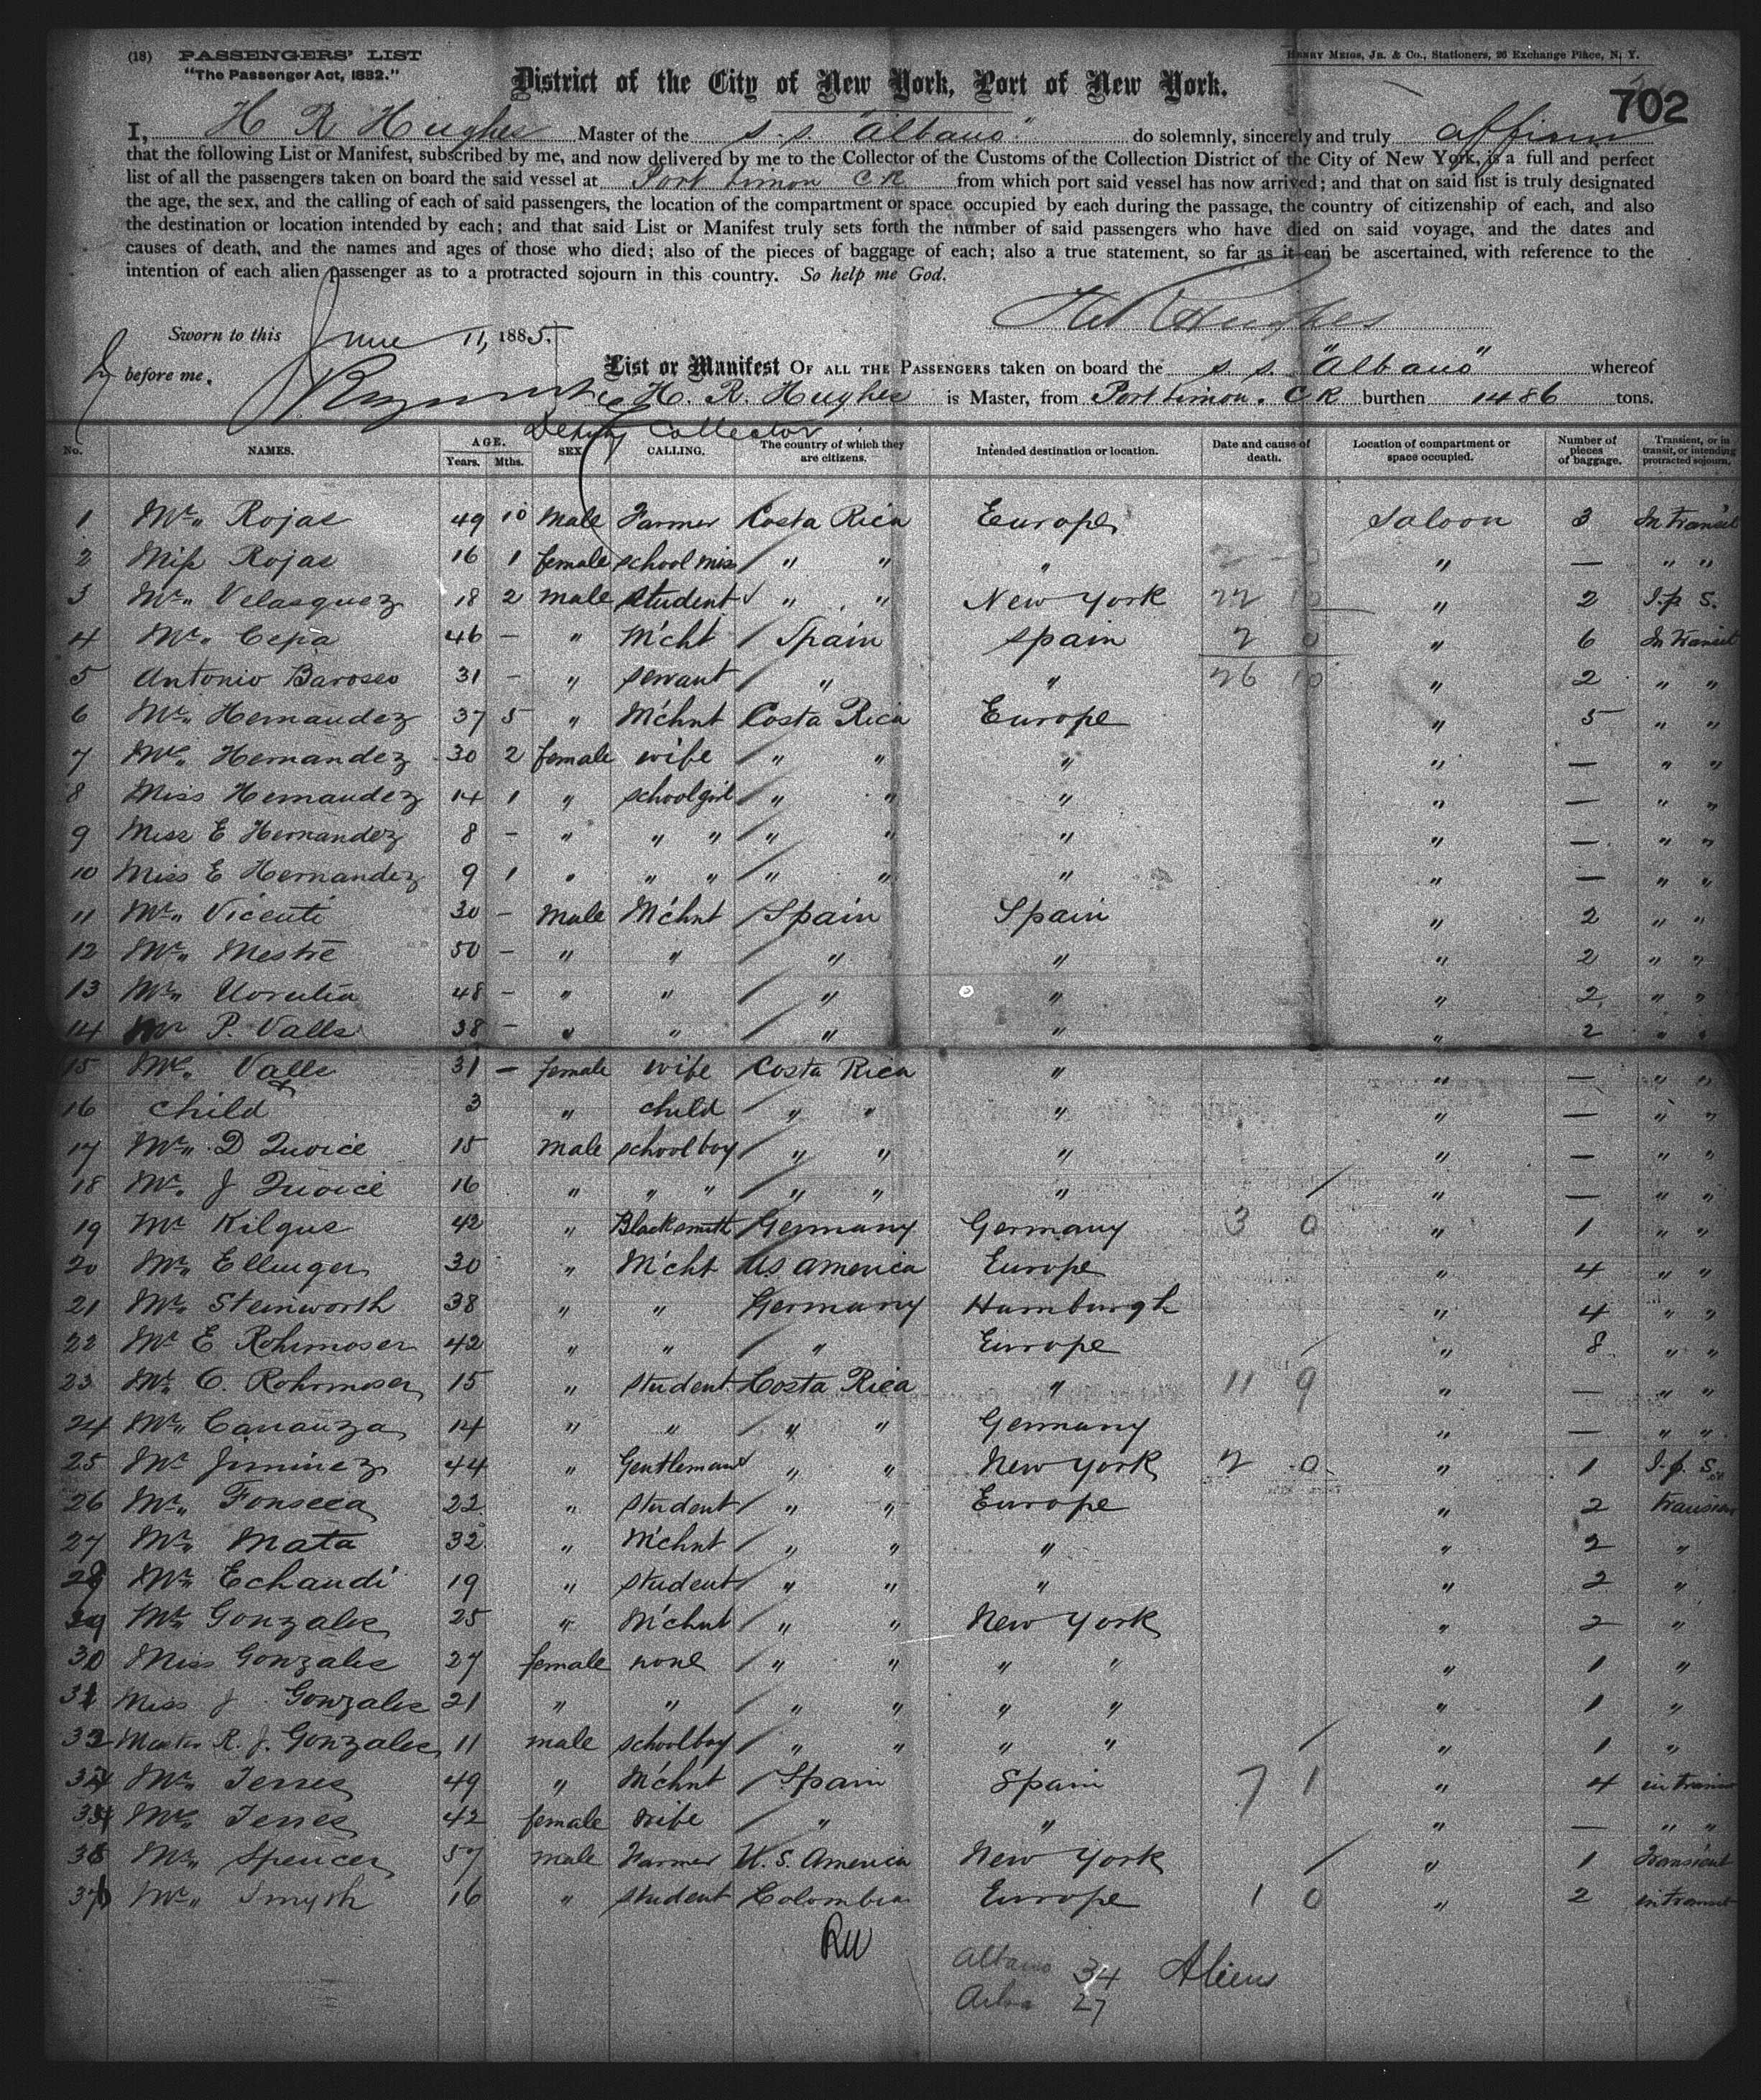 (18) PASSENGERS' LIST
"The Passenger Act, 1882."
HENRY MEIGS, JR. & CO., Stationers, 26 Exchange Place, N. Y.
District of the City of New York, Port of New York.
702
I, H R Hughes Master of the s. s. "Albano" do solemnly, sincerely and truly affirm
that the following List or Manifest, subscribed by me, and now delivered by me to the Collector of the Customs of the Collection District of the City of New York, is a full and perfect
list of all the passengers taken on board the said vessel at Port Limon CR from which port said vessel has now arrived; and that on said list is truly designated
the age, the sex, and the calling of each of said passengers, the location of the compartment or space occupied by each during the passage, the country of citizenship of each, and also
the destination or location intended by each; and that said List or Manifest truly sets forth the number of said passengers who have died on said voyage, and the dates and
causes of death, and the names and ages of those who died; also of the pieces of baggage of each; also a true statement, so far as it can be ascertained, with reference to the
intention of each alien passenger as to a protracted sojourn in this country. So help me God.
H R Hughes
Sworn to this June 11, 1885.
before me.
List or Manifest OF ALL THE PASSENGERS taken on board the s. s. "Albano" whereof
H. R. Hughes is Master, from Port Limon. CR burthen 1486 tons.
Deputy Collector
No. NAMES. AGE. Years. Mths. SEX CALLING. The country of which they are citizens. Intended destination or location. Date and cause of death. Location of compartment or space occupied. Number of pieces of baggage. Transient, or in transit, or intending protracted sojourn.
1 Mr. Rojas 49 10 Male Farmer Costa Rica Europe Saloon 3 In Transit
2 Miss Rojas 16 1 female school miss " " " " — " "
3 Mr. Velasquez 18 2 male student " " New York 22 10 " 2 I. p S.
4 Mr. Cepa 46 — " M'cht Spain Spain 2 0 " 6 In Transit
5 Antonio Baroseo 31 — " servant " " 26 10 " 2 " "
6 Mr. Hernandez 37 5 " M'chnt Costa Rica Europe " 5 " "
7 Mrs. Hernandez 30 2 female wife " " " " — " "
8 Miss Hernandez 14 1 " schoolgirl " " " " — " "
9 Miss E Hernandez 8 — " " " " " " " — " "
10 Miss E Hernandez 9 1 " " " " " " " — " "
11 Mr. Vicenti 30 — Male M'chnt Spain Spain " 2 " "
12 Mr. Mestre 50 — " " " " " 2 " "
13 Mr. 48 — " " " " " 2 " "
14 Mr P. Valls 38 — " " " " " 2 " "
15 Mrs. Valls 31 — female wife Costa Rica " " — " "
&
16 child 3 " child " " " " — " "
17 Mr. D 15 male schoolboy " " " " — " "
18 Mr. J 16 " " " " " " " — " "
19 Mr Kilgus 42 " Blacksmith Germany Germany 3 0 " 1 " "
20 Mr. Ellinger 30 " M'cht US America Europe " 4 " "
21 Mr. Steinworth 38 " " Germany Hamburgh " 4 " "
22 Mr E Rohrmoser 42 " " " Europe " 8 " "
23 Mr. O. Rohrmoser 15 " student Costa Rica " 11 9 " — " "
24 Mr. Carranza 14 " " " " Germany " — " "
25 Mr Jiminez 44 " Gentleman " " New York 2 0 " 1 I. p. S.
26 Mr. Fonseca 22 " student " " Europe " 2 Transient
27 Mr. Mata 32 " M'chnt " " " " 2 "
28 Mr. Echandi 19 " student " " " " 2 "
29 Mr. Gonzales 25 " M'chnt " " New York " 2 "
30 Miss Gonzales 27 female none " " " " " 1 "
31 Miss J Gonzales 21 " " " " " " " 1 "
32 Master R. J. Gonzales 11 male schoolboy " " " " " 1 "
Mr. Terres 49 " M'chnt Spain Spain 7 1 " 4 in transit
34 Mrs. Terres 42 female wife " " " — " "
Mr. Spencer 57 male Farmer U. S. America New York " 1 Transient
Mr. Smyth 16 " student Colombia Europe 1 0 " 2 in transit
RW
Albano 34 Aliens
27